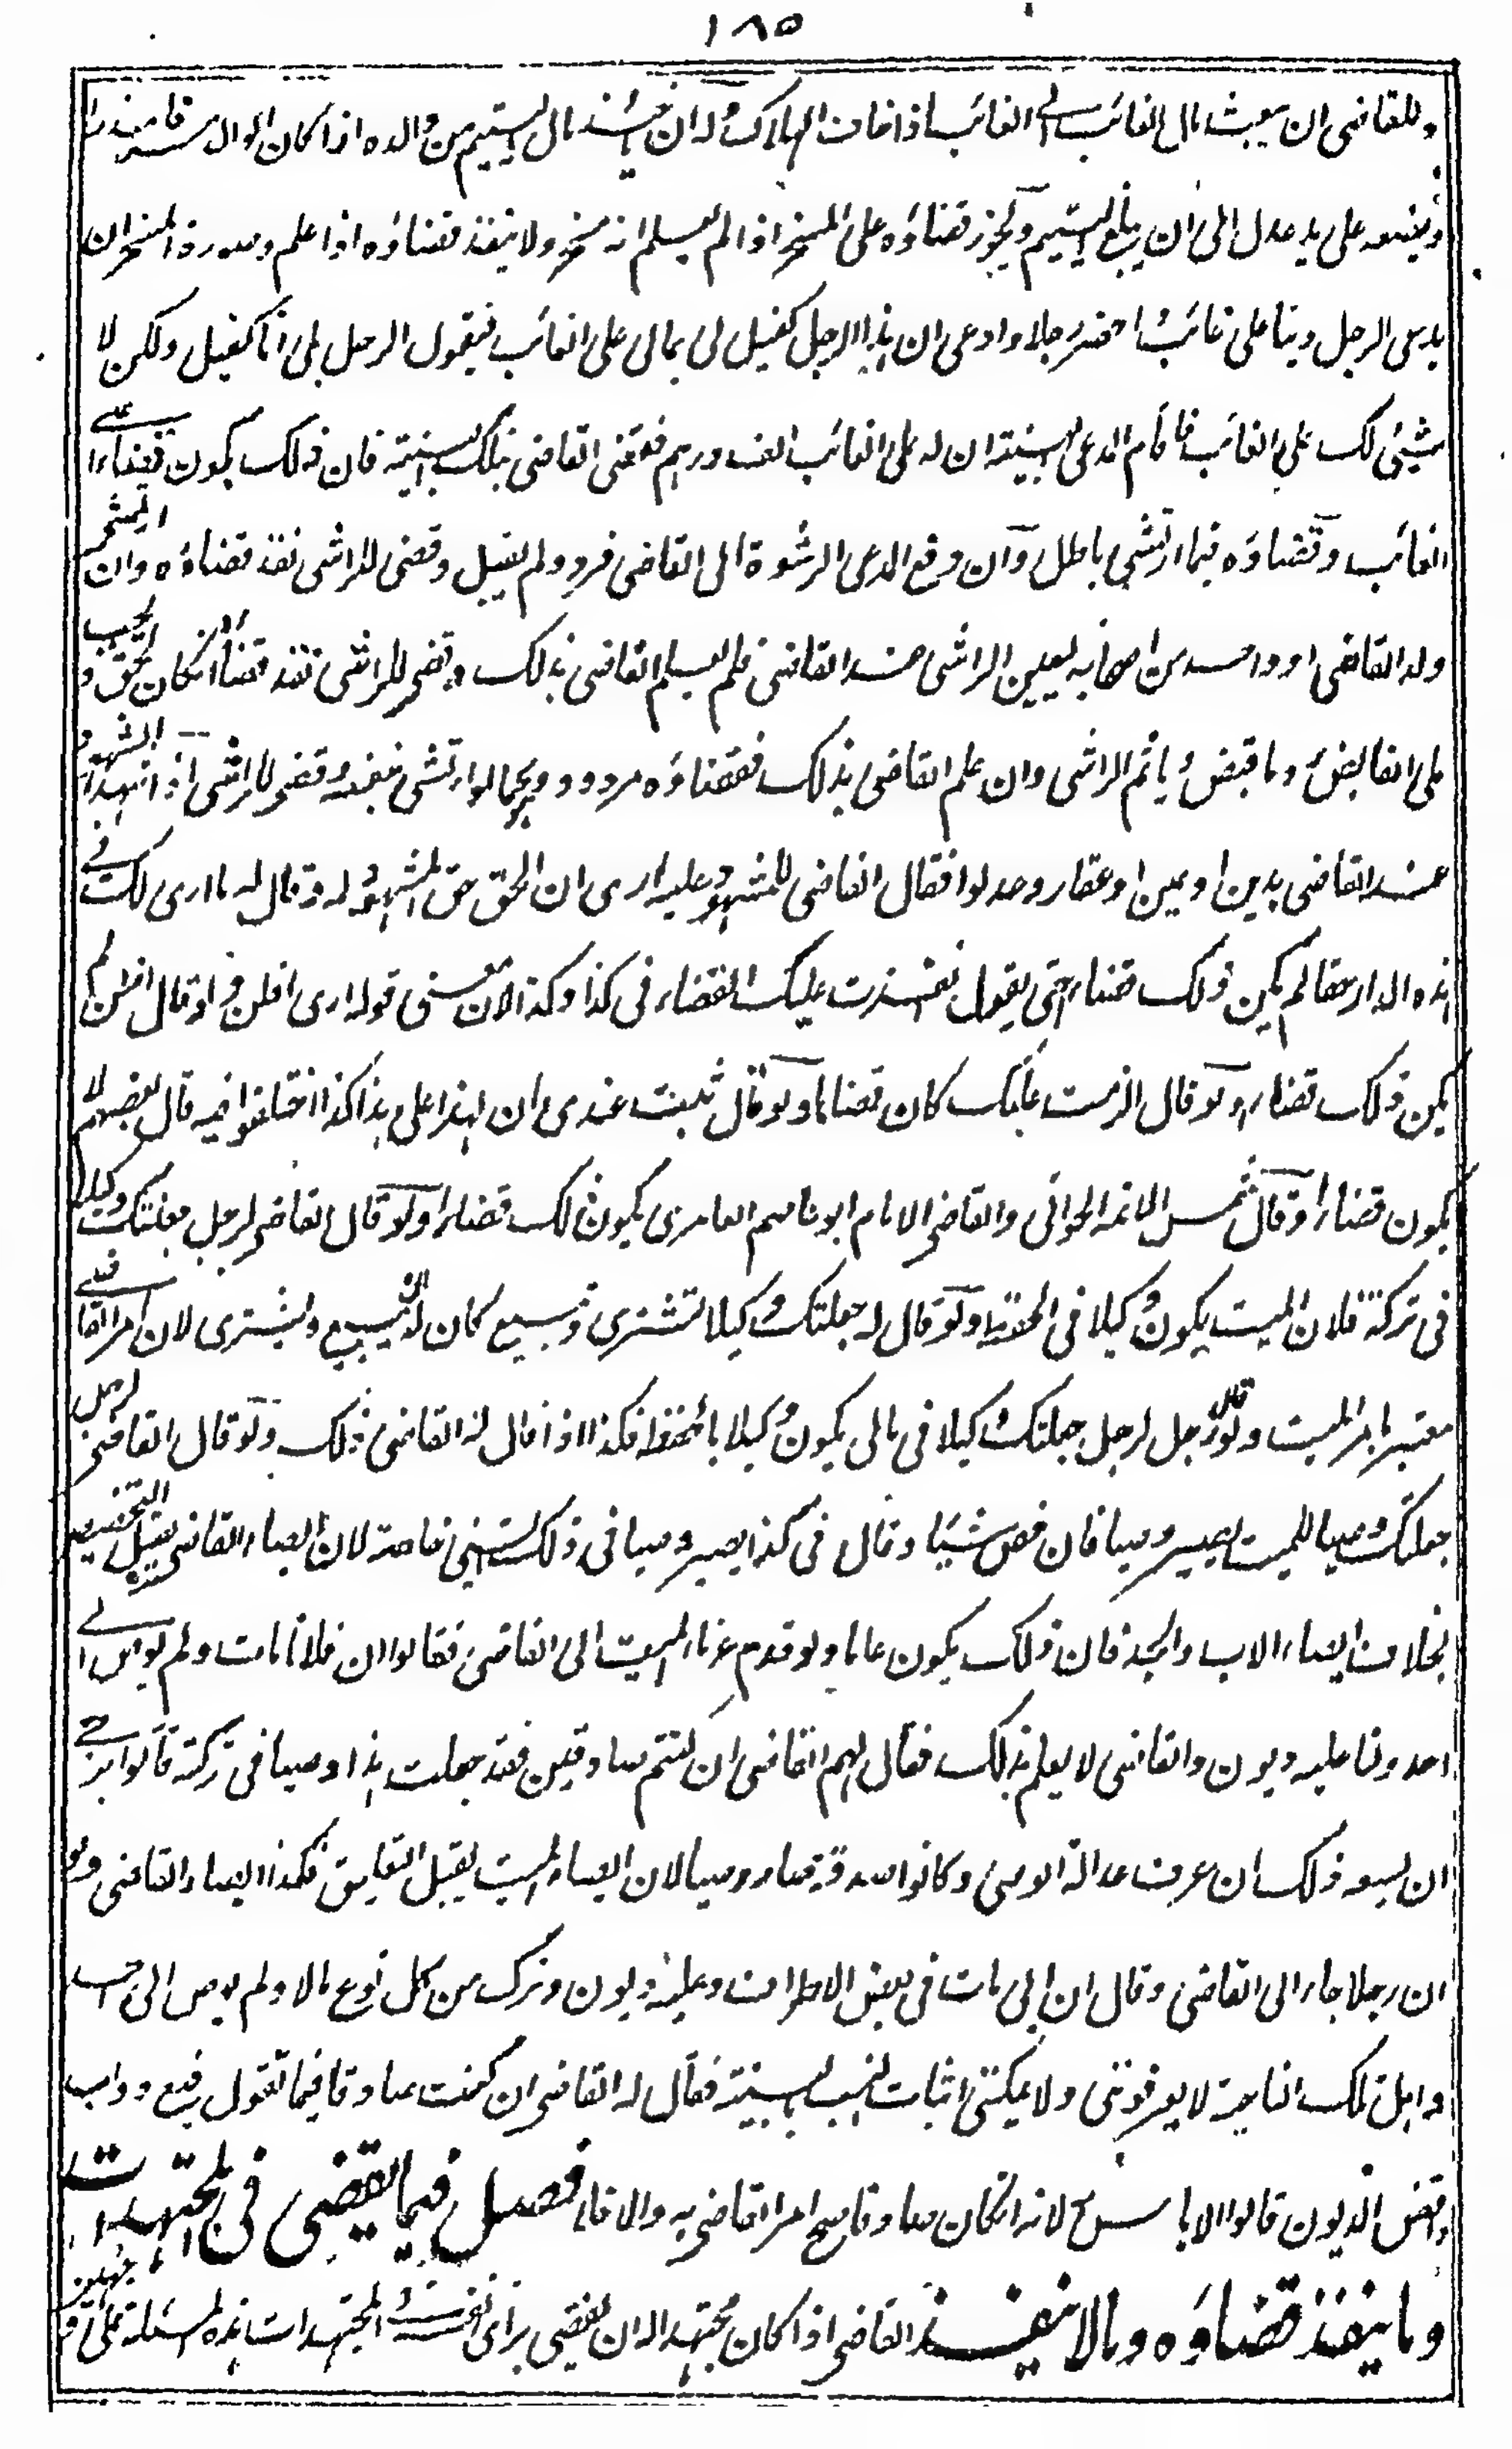 ١٨٥
وللقاضى ان يبعث مال الغائب الى الغائب اذا خاف الهلاك وله ان ياخذ مال اليتيم من والده اذا كان الوالد مسرفا مبذرا
ويضعه على يد عدل الى ان يبلغ اليتيم ويجوز قضاؤه على المسخر اذا لم يعلم انه مسخر ولا ينفذ قضاؤه اذا علم وصورة المسخر ان
يدعى الرجل دينا على غائب واحضر رجلا وادعى ان هذا الرجل كفيل لى بمالى على الغائب فيقول الرجل بلى انا كفيل ولكن لا
شيئ لك على الغائب فاقام المدعى البينة ان له على الغائب الف درهم فقضى القاضى بتلك البينة فان ذلك يكون قضاء على
الغائب وقضاؤه فيما ارتشى باطل وان دفع المدعى الرشوة الى القاضى فرد ولم يقبل وقضى للراشى نفذ قضاؤه وان ارتشى
ولد القاضى او واحد من اصحابه ليعين الراشى عند القاضى فلم يعلم القاضى بذلك وقضى للراشى نفذ قضاؤه انكان بحق ويجب
على القابض رد ما قبض وياثم الراشى وان علم القاضى بذلك فقضاؤه مردود ويجعل كما لو ارتشى بنفسه وقضى للراشى اذا شهد الشهود
عند القاضى بدين او عين او عقار وعدلوا فقال القاضى للمشهود عليه ارى ان الحق حق المشهود له وقال له ما ارى لك فى
هذه الدار حقا لم يكن ذلك قضاء حتى يقول نفذت عليك القضاء فى كذا وكذا لان معنى قوله ارى اظن ولو قال اظن لم
يكن ذلك قضاء ولو قال الزمت عليك كان قضاء ولو قال ثبت عندى ان لهذا على هذا كذا اختلفوا فيه قال بعضهم لا
يكون قضاء وقال شمس الائمة الحلوانى والقاضى الامام ابو عاصم العامرى يكون ذلك قضاء ولو قال القاضى لرجل جعلتك وكيلا
فى تركة فلان الميت يكون وكيلا فى الحفظ ولو قال له جعلتك وكيلا تشترى وتبيع كان له ان يبيع ويشترى لان امر القاضى
معتبر بامر الميت ولو قال رجل لرجل جعلتك وكيلا فى مالى يكون وكيلا بالحفظ فكذا اذا قال له القاضى ذلك ولو قال القاضى لرجل
جعلتك وصيا للميت يصير وصيا فان خص شيئا وقال فى كذا يصير وصيا فى ذلك الشيئ خاصة لان ايصاء القاضى يقبل التخصيص
بخلاف ايصاء الاب والجد فان ذلك يكون عاما ولو قدم غرماء الميت الى القاضى فقالوا ان فلانا مات ولم يوص الى
احد ولنا عليه ديون والقاضى لا يعلم بذلك فقال لهم القاضى ان كنتم صادقين فقد جعلت هذا وصيا فى تركة قالوا يرجى
ان يسعه ذلك ان عرف عدالة الوصى وكانوا صدقة فصار وصيا لان ايصاء الميت يقبل التعليق فكذا ايصاء القاضى ولو
ان رجلا جاء الى القاضى وقال ان ابى مات فى بعض الاطراف وعليه ديون وترك من كل نوع مالا ولم يوص الى احد
واهل تلك الناحية لا يعرفوننى ولا يمكننى اثبات النسب بالبينة فقال له القاضى ان كنت صادقا فيما تقول فبع دواب
واقض الديون قالوا لا باس به لانه انكان صادقا صح امر القاضى به والا فلا فصل فيما يقضى فى المجتهدات
وما ينفذ قضاؤه وما لا ينفذ القاضى اذا كان مجتهدا له ان يقضى براى نفسه فى المجتهدات هذه المسئلة على وجهين